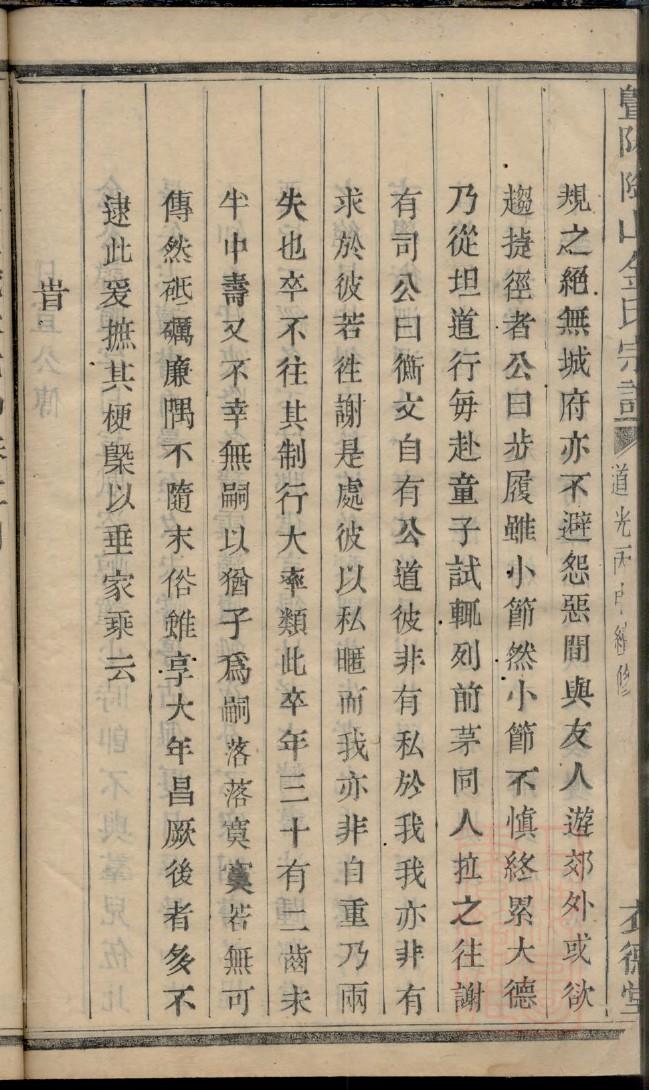 暨陽陰山金氏宗譜
道光丙申編修
規之絕無城府亦不避怨惡間與友人遊郊外或欲
趨捷徑者公曰步履雖小節然小節不慎終累大德
乃從坦道行毎赴童子試輒列前茅同人拉之往謝
有司公曰衡文自有公道彼非有私於我我亦非有
求於彼若徃謝是處彼以私暱而我亦非自重乃兩
失也卒不往其制行大率類此卒年三十有二齒未
半中壽又不幸無嗣以猶子爲嗣落落寞寞若無可
傳然砥礪廉隅不隨末俗雖享大年昌厥後者多不
逮此爰摭其梗槩以垂家乘云
昔